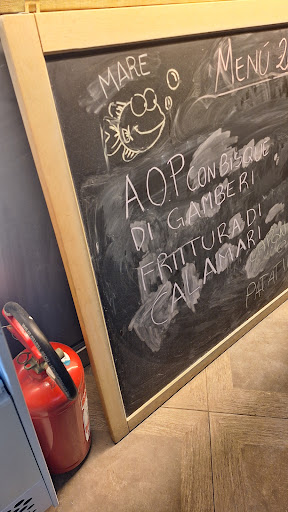 MARE
MENÚ 2
A.O.P CON BISQUE
DI GAMBERI
FRITTURA DI
CALAMARI